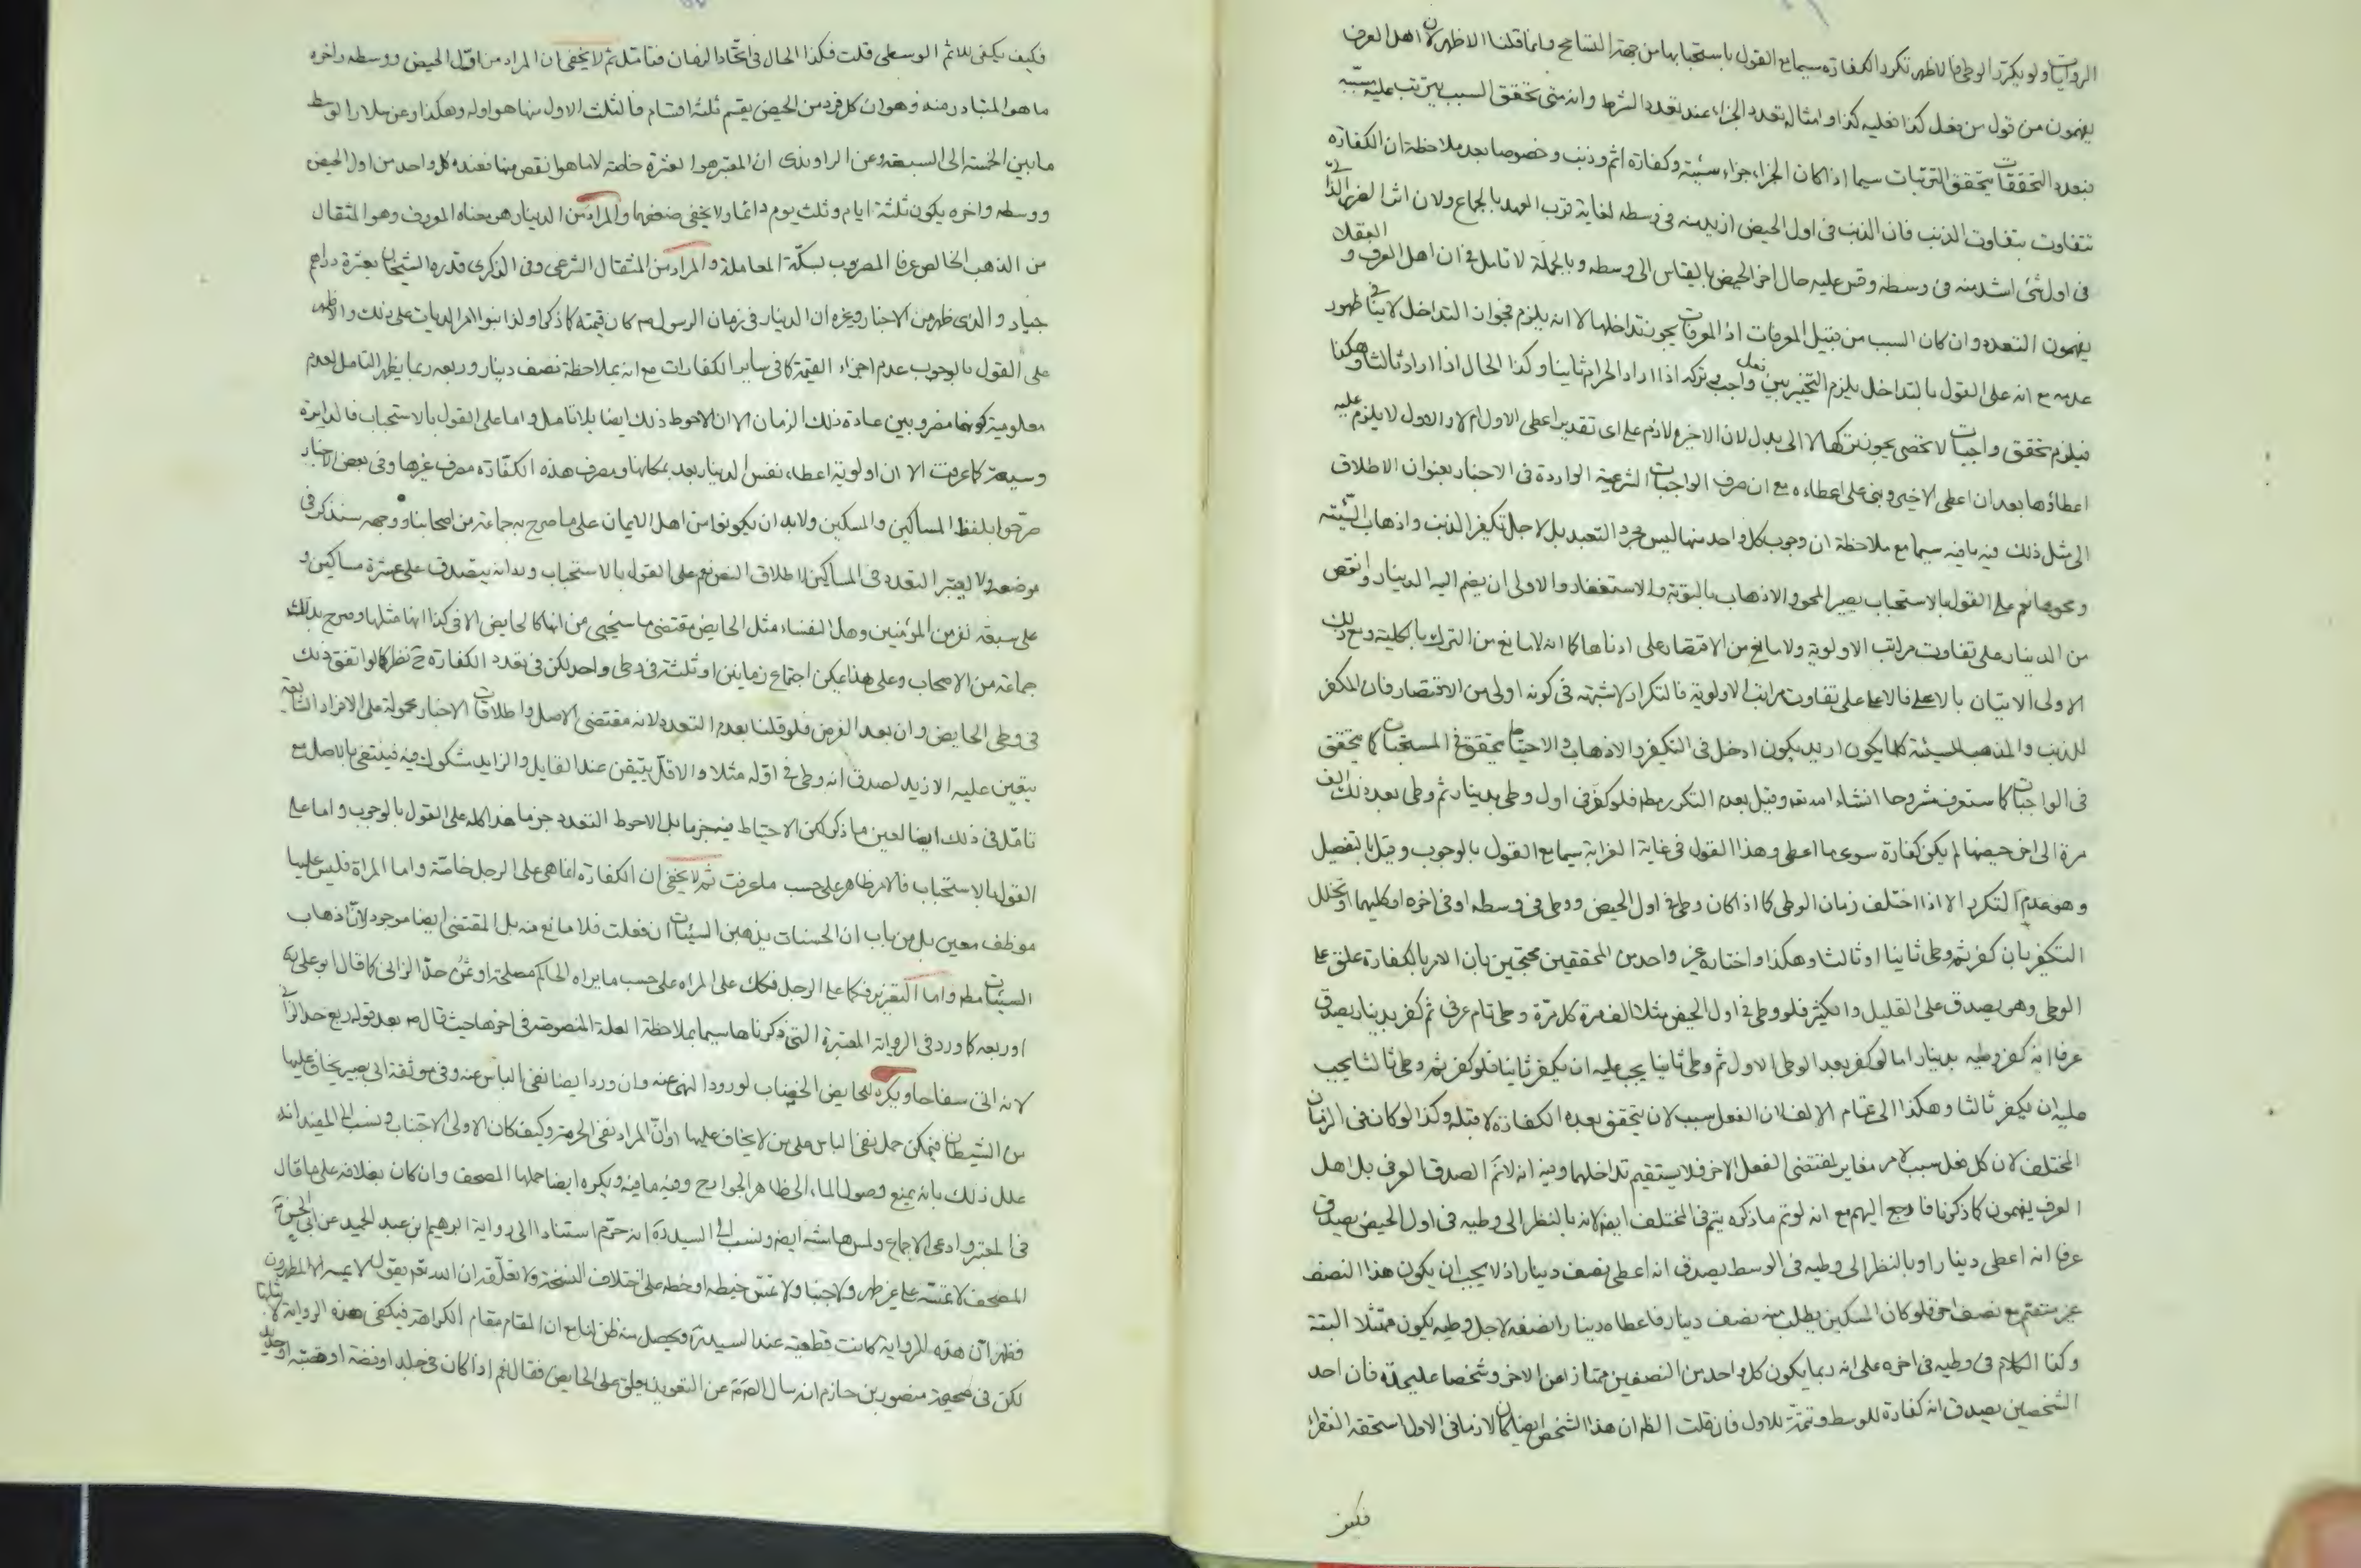 الروايات ولو يكرر الوطي فالاظهر تكرر الكفارة سيما مع القول باستحبابها من جهة التسامح وانما قلنا الاظهر لان اهل العرف
يفهمون من قول من فعل كذا فعليه كذا وامثاله تعدد الجزاء عند تعدد الشرط وانه متى تحقق السبب يترتب عليه مسببه
فبتعدد التحققات يتحقق الترتبات سيما اذا كان الجزاء جزاء سيئة وكفارة اثم وذنب وخصوصا بعد ملاحظة ان الكفارة
تتفاوت بتفاوت الذنب فان الذنب في اول الحيض ازيد منه في وسطه لغاية قرب العهد بالجماع ولان اثر
في اول شئ اشد منه في وسطه وقس عليه حال اخر الحيض بالقياس الى وسطه وبالجملة لا تامل في ان اهل العرف و العقلاء
يفهمون التعدد وان كان السبب من قبيل المعرفات اذ المعرفات يجوز تداخلها لا انه يلزم فجواز التداخل لا ينافي ظهور
عدمه مع انه على القول بالتداخل يلزم التخيير بين فعل واجب وتركه اذا اراد الحرام ثانيا وكذا الحال اذا اراد ثالثا وهكذا
فيلزم تحقق واجبات لا تحصى يجوز تركها لا الى بدل لان الاخيرة لازم على اى تقدير اعطى الاول ام لا والاول لا يلزم عليه
اعطاؤها بعد ان اعطى الاخير وبنى على اعطاءه مع ان صرف الواجبات الشرعية الواردة في الاخبار بعنوان الاطلاق
الى مثل ذلك فيه ما فيه سيما مع ملاحظة ان وجوب كل واحد منها ليس مجرد التعبد بل لاجل تكفير الذنب واذهاب السيئة
ومحوها نعم على القول بالاستحباب يصير المحو والاذهاب بالتوبة والاستغفار والاولى ان يضم اليه الدينار وانقص
من الدينار على تفاوت مراتب الاولوية ولا مانع من الاقتصار على ادناها كما انه لا مانع من الترك بالكلية ومع ذلك
الاولى الاتيان بالاعلى فالاعلى على تفاوت مراتب الاولوية فالتكرار لا شبهة في كونه اولى من الاقتصار فان المكفر
للذنب والمذهب للسيئة كلما يكون ازيد يكون ادخل في التكفير والاذهاب والاحتياط يتحقق في المستحبات كما يتحقق
في الواجبات كما ستعرف مشروحا انشاء الله تع وقيل بعدم التكرر مطه فلو كفر في اول وطى بدينار ثم وطى بعد ذلك الف
مرة الى اخر حيضها لم يكن كفارة سوى ما اعطى وهذا القول في غاية الغرابة سيما مع القول بالوجوب وقيل بالتفصيل
وهو عدم التكرر الا اذا اختلف زمان الوطى كما اذا كان وطى في اول الحيض ووطى في وسطه او في اخره او كليهما او تخلل
التكفير بان كفر ثم وطى ثانيا او ثالثا وهكذا واختاره غير واحد من المحققين محتجين بان الامر بالكفارة علق على
الوطى وهو يصدق على القليل والكثير فلو وطى في اول الحيض مثلا الف مرة كل مرة وطى تام عرفي ثم كفر بدينار يصدق
عرفا انه كفر وطيه بدينار اما لو كفر بعد الوطى الاول ثم وطى ثانيا يجب عليه ان يكفر ثانيا فلو كفر ثم وطى ثالثا يجب
عليه ان يكفر ثالثا وهكذا الى تمام الالف لان الفعل سبب لان يتحقق بعده الكفارة لا قبله وكذا لو كان في الزمان
المختلف لان كل فعل سبب لامر مغاير لمقتضى الفعل الاخر فلا يستقيم تداخلهما وفيه انه لا نم الصدق العرفي بل اهل
العرف يفهمون كما ذكرنا فارجع اليهم مع انه لو تم ما ذكره يتم في المختلف ايضه لانه بالنظر الى وطيه في اول الحيض يصدق
عرفا انه اعطى دينارا وبالنظر الى وطيه في الوسط يصدق انه اعطى نصف دينار اذ لا يجب ان يكون هذا النصف
غير منضم مع نصف اخر فلو كان المسكين يطلب منه نصف دينار فاعطاه دينارا نصفه لاجل وطيه يكون ممتثلا البتة
وكذا الكلام في وطيه في اخره على انه ربما يكون كل واحد من النصفين ممتازا من الاخر وشخصا عليحدة فان احد
الشخصين يصدق انه كفارة للوسط وتتمة للاول فان قلت الظ ان هذا الشخص ايضا كان لازما في الاول استحقه الفقراء
فكيف
فكيف يكفى للاثم الوسطى قلت فكذا الحال في اتحاد الزمان فتامل ثم لا يخفى ان المراد من اول الحيض ووسطه واخره
ما هو المتبادر منه وهو ان كل فرد من الحيض يقسم ثلثة اقسام فالثلث الاول منها هو اوله وهكذا وعن سلار الوسط
ما بين الخمسة الى السبعة وعن الراوندى ان المعتبر هو العشرة خاصة لا ما هو انقص منها فعنده كل واحد من اول الحيض
ووسطه واخره يكون ثلثة ايام وثلث يوم دائما ولا يخفى ضعفهما والمراد من الدينار هو معناه المعروف وهو المثقال
من الذهب الخالص عرفا المضروب لسكة المعاملة والمراد من المثقال الشرعى وفى الذكرى قدره الشيخان بعشرة دراهم
جياد والذى ظهر من الاخبار وغيره ان الدينار في زمان الرسول ص كان قيمته كما ذكر ولذا بنوا امر الديات على ذلك والاظهر
على القول بالوجوب عدم اجزاء القيمة كما في ساير الكفارات مع انه بملاحظة نصف دينار وربعه ربما يظهر التامل لعدم
معلومية كونهما مضروبين عادة ذلك الزمان الا ان الاحوط ذلك ايضا بلا تامل واما على القول بالاستحباب فالدايرة
وسيعة كما عرفت الا ان اولوية اعطاء نفس الدينار بعد بمكانها ومصرف هذه الكفارة مصرف غيرها وفى بعض الاخبار
صرحوا بلفظ المساكين والمسكين ولابد ان يكونوا من اهل الايمان على ما صرح به جماعة من اصحابنا ووجهه سنذكر في
موضعه ولا يعتبر التعدد في المساكين لاطلاق النص نعم على القول بالاستحباب وبدانه يتصدق على عشرة مساكين و
على سبعة نفر من المؤمنين وهل النفساء مثل الحايض مقتضى ما سيجيئ من انها كالحايض الا في كذا انها مثلها وصرح بذلك
جماعة من الاصحاب وعلى هذا يمكن اجتماع زمانين او ثلثة في وطى واحد لكن في تعدد الكفارة ح نظر كما لو اتفق ذلك
في وطى الحايض وان بعد الفرض فلو قلنا بعدم التعدد لانه مقتضى الاصل واطلاقات الاخبار محمولة على الافراد الشايعة
يتعين عليه الازيد لصدق انه وطى في اوله مثلا والاقل يتيقن عند القايل والزايد مشكوك فيه فينتفي بالاصل مع
تامل في ذلك ايضا لعين ما ذكر لكن الاحتياط فيه جزما بل الاحوط التعدد جزما هذا كله على القول بالوجوب واما على
القول بالاستحباب فالامر ظاهر على حسب ما عرفت ثم لا يخفى ان الكفارة انما هى على الرجل خاصة واما المراة فليس عليها
موظف معين بل من باب ان الحسنات يذهبن السيئات ان فعلت فلا مانع منه بل المقتضى ايضا موجود لان اذهاب
السيئات مطه واما التعزير فكما على الرجل فكك على المراه على حسب ما يراه الحاكم مصلحة او ثمن حد الزاني كما قال ابو على
او ربعه كما ورد في الرواية المعتبرة التي ذكرناها سيما بملاحظة العلة المنصوصة في اخرها حيث قال ص بعد قوله ربع حد الزاني
لانه اتى سفاحا ويكره للحايض الخضاب لورود النهى عنه وان ورد ايضا نفى الباس عنه وفى موثقة ابى بصير يخاف عليها
من الشيطان فيمكن حمل نفى الباس على من لا يخاف عليها او ان المراد نفى الحرمة وكيف كان الاولى الاجتناب ونسب الى المفيد انه
علل ذلك بانه يمنع وصول الماء الى ظاهر الجوارح وفيه ما فيه ويكره ايضا حملها المصحف وان كان بغلافه على ما قال
في المعتبر وادعى الاجماع ولمس هامشه ايضه ونسب الى السيد ره انه حرم استنادا الى رواية ابرهيم ابن عبد الحميد عن ابى الحسن ع
المصحف لا تمسه على غير طهر ولا جنبا ولا تمس خيطه او خطه على اختلاف النسخة ولا تعلقه ان الله تعم يقول لا يمسه الا المطهرون
فظهر ان هذه الرواية كانت قطعية عند السيد ره ويحصل منه ظن لنا مع ان المقام مقام الكراهة فيكفى هذه الرواية لاثباتها
لكن في صحيحة منصور بن حازم انه سال الص ع عن التعويذ يعلق على الحايض فقال نعم اذا كان في جلد او فضة او قصبة او حديد